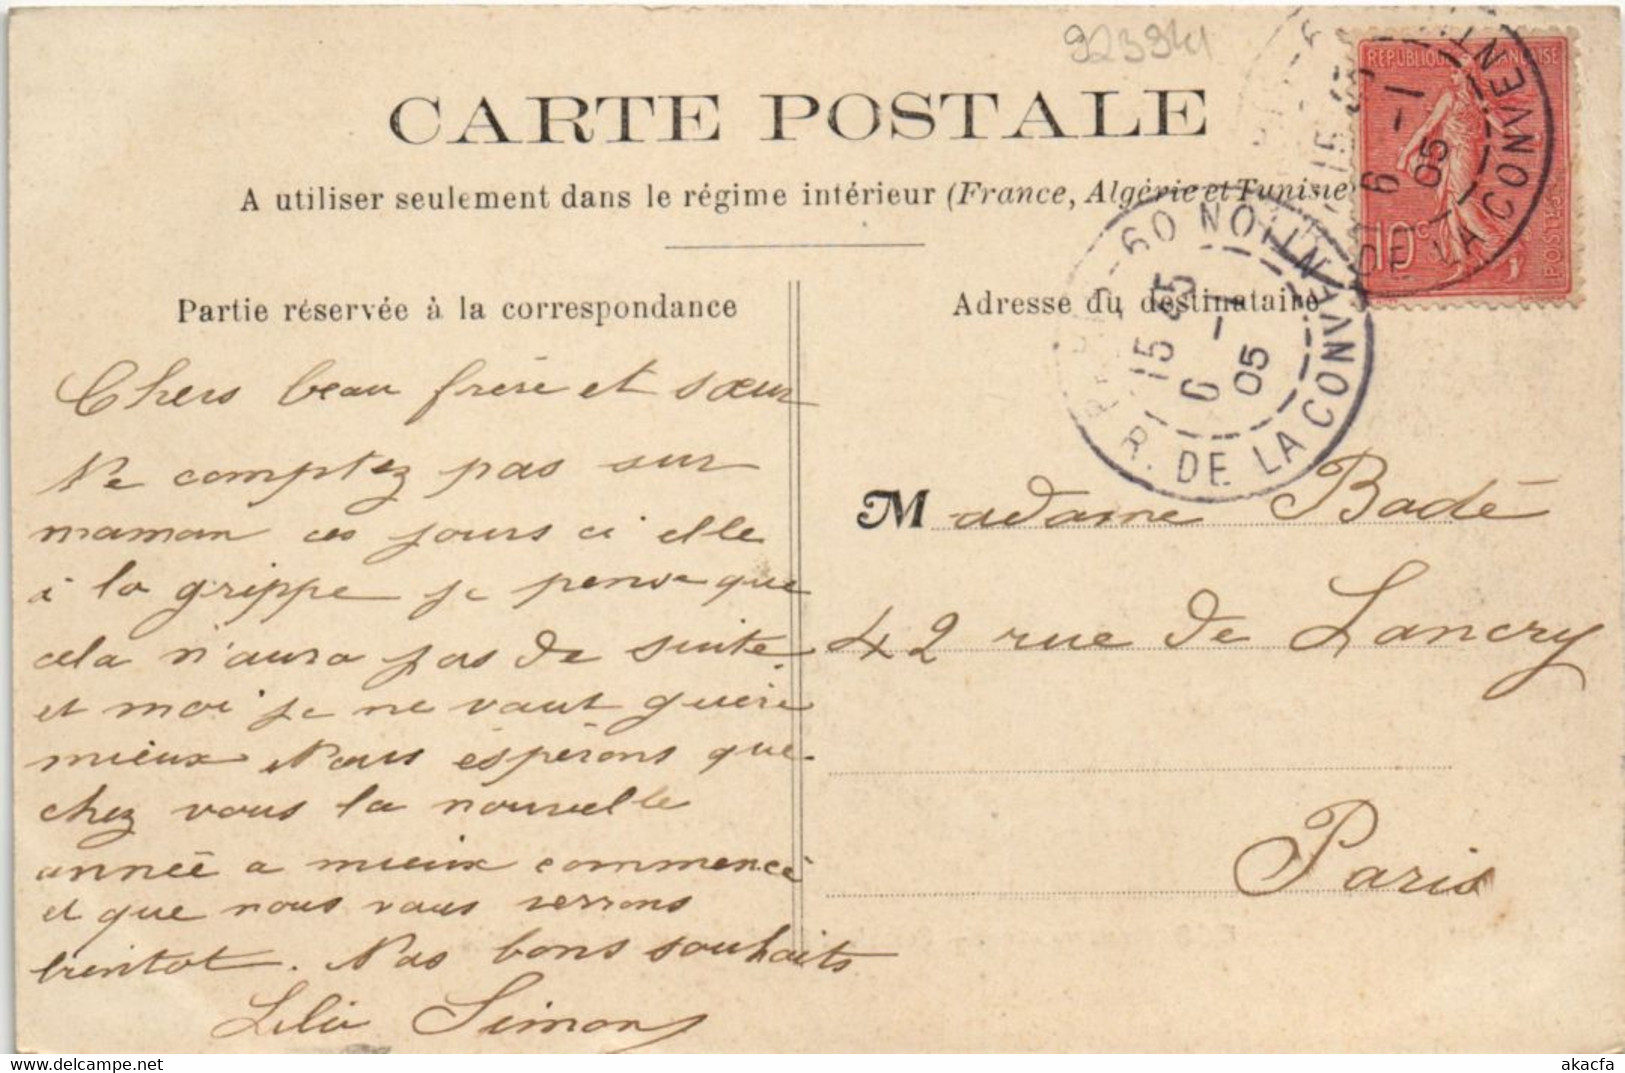 92394
CARTE POSTALE
A utiliser seulement dans le régime intérieur (France, Algérie et Tunisie
RÉPUBLIQUE FRANÇAISE
10c
POSTES
15 45
6 - 1
05
DE LA CONVENT
60
R. DE LA CONVENTION
15 45
6 - 1
05
Partie réservée à la correspondance
Chers beau frère et sœur
Ne comptez pas sur
maman ces jours ci elle
à la grippe je pense que
cela n'aura pas de suite
et moi je ne vaut guère
mieux Nous espèrons que
chez vous la nouvelle
année a mieux commencé
et que nous vous verrons
bientot. Nos bons souhaits
Simon
Adresse du destinataire
Madame Badé
42 rue de Lancry
Paris
akacfa